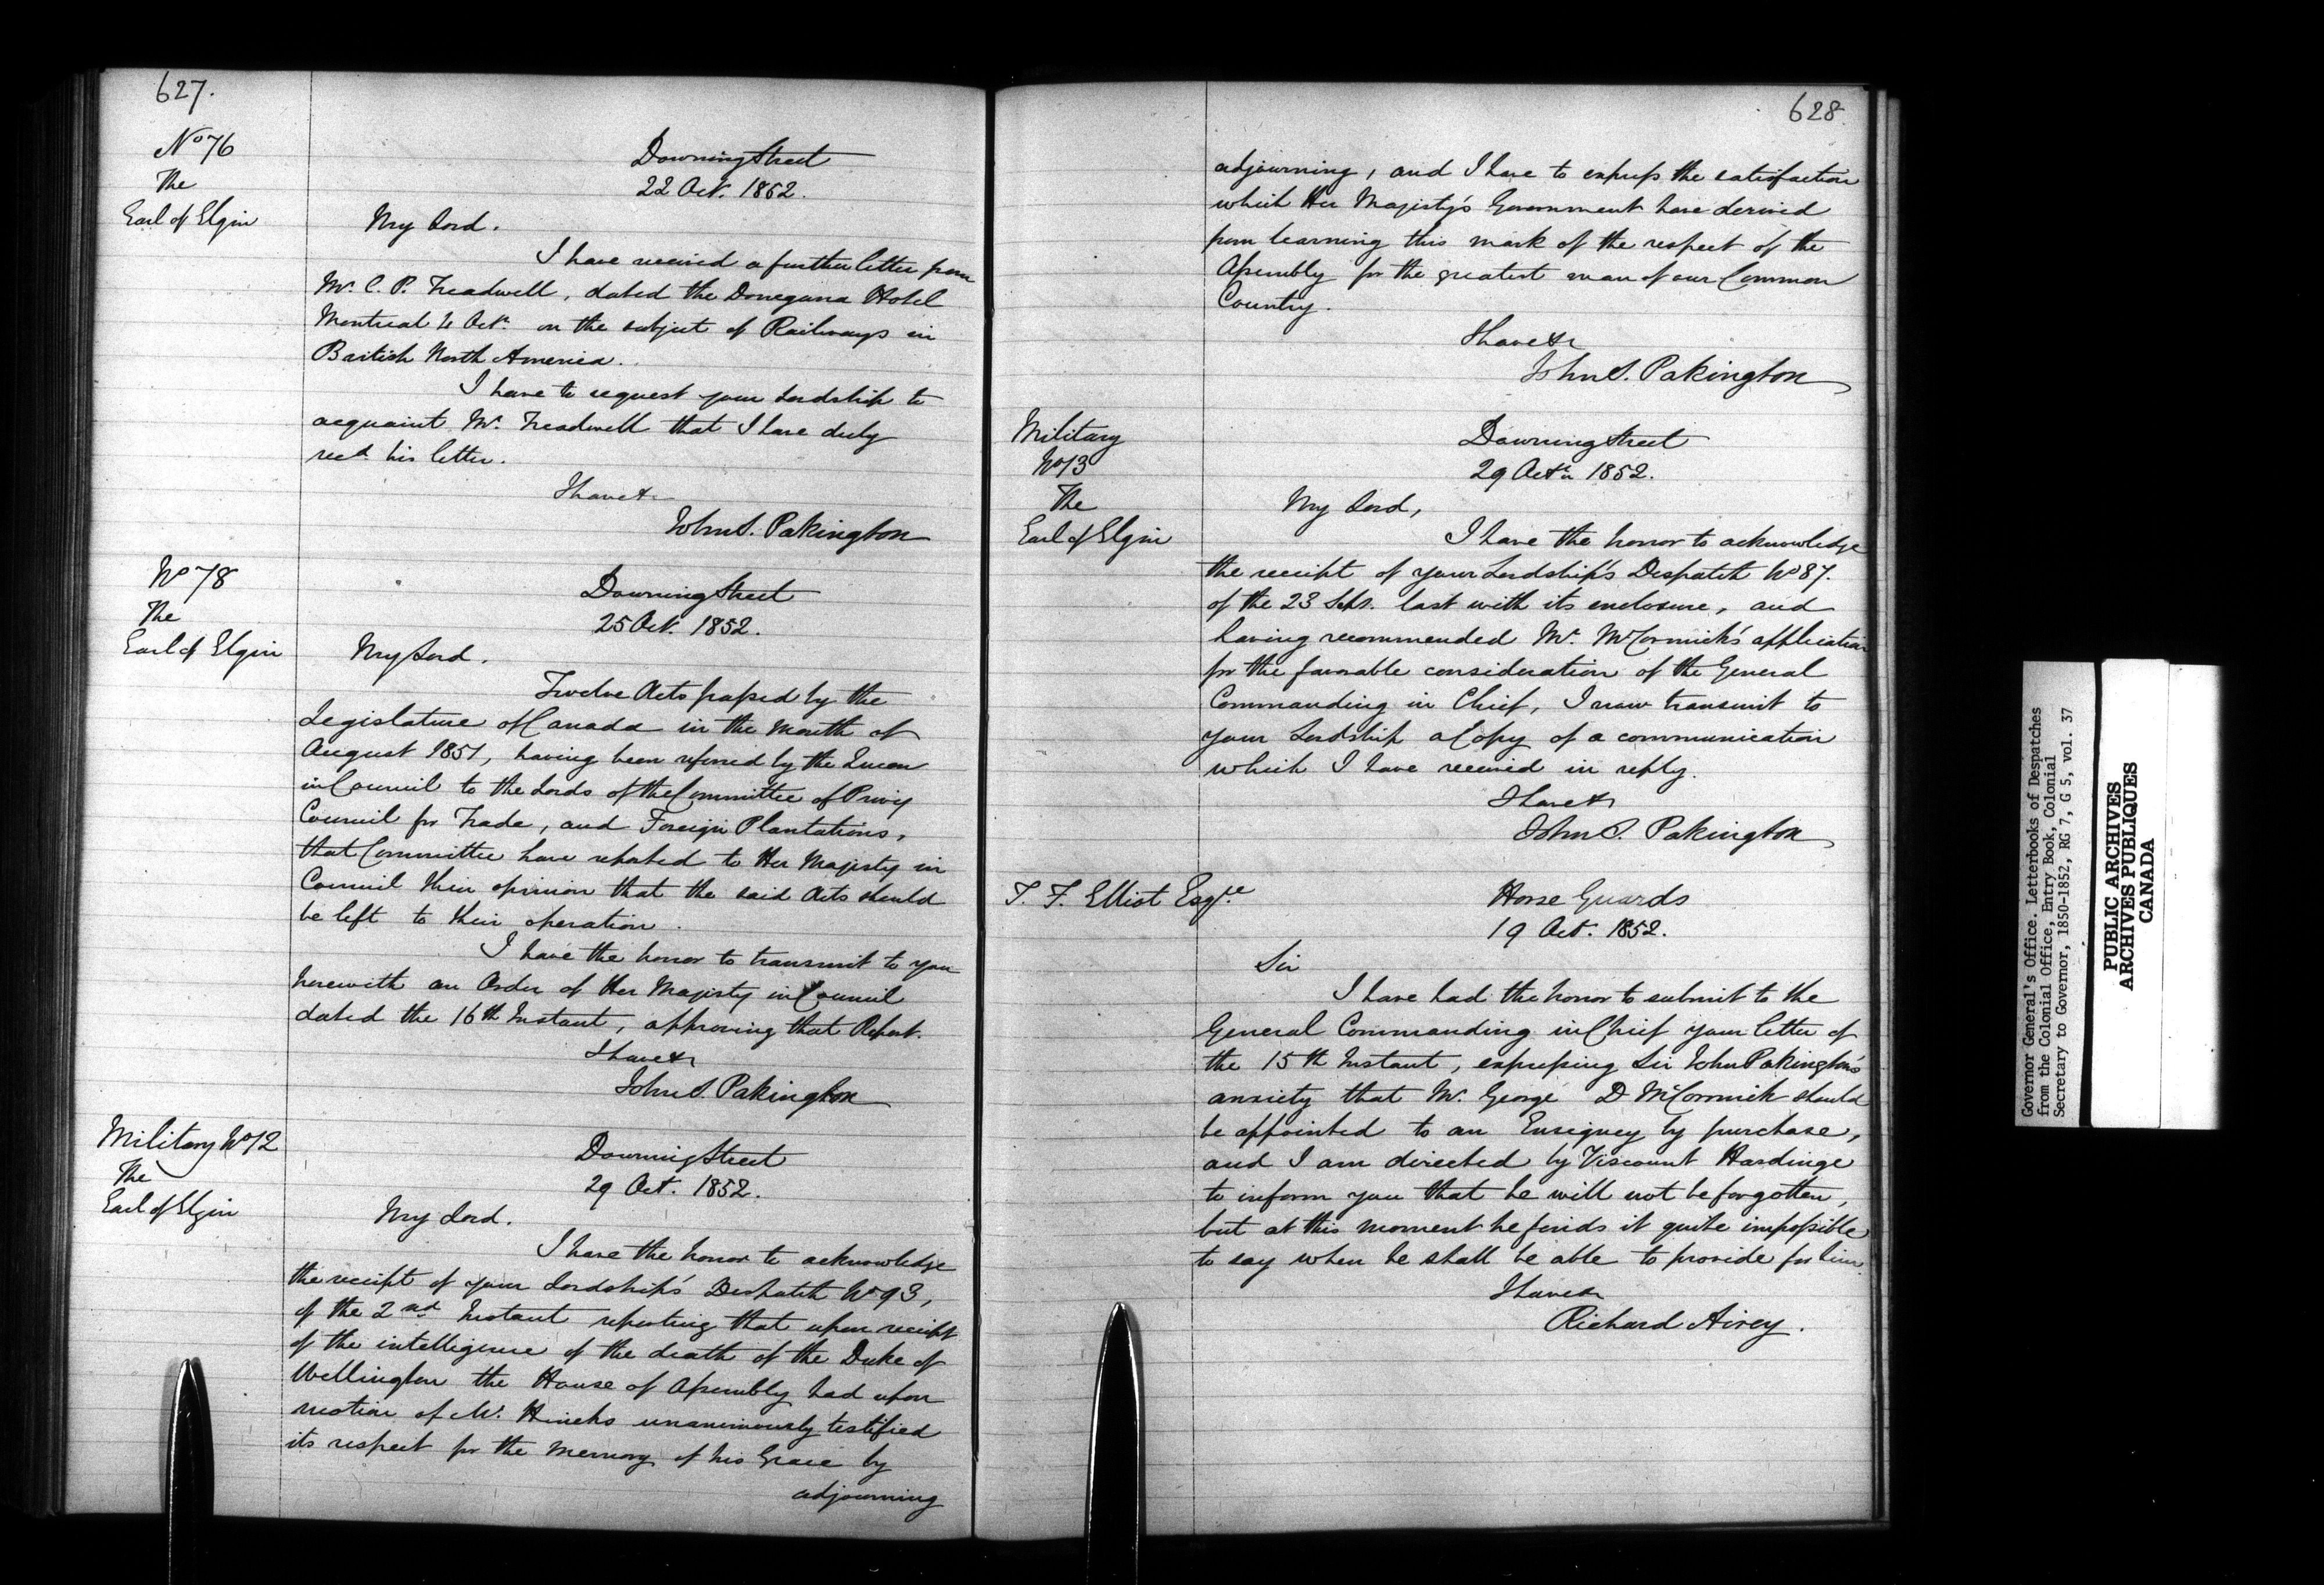 627.
No 76
The
Earl of Elgin
Downing Street
22 Oct. 1852.
My Lord.
I have received a further letter from
Mr. C. P. Treadwell, dated the Donegana Hotel
Montreal 4 Octr. on the subject of Railways in
British North America.
I have to request your Lordship to
acquaint Mr. Treadwell that I have duly
recd. his letter.
I have &c
John S. Pakington
No 78
The
Earl of Elgin
Downing Street
25 Oct. 1852.
My Lord.
Twelve Acts passed by the
Legislature of Canada in the month of
August 1851, having been referred by the Queen
in Council to the Lords of the Committee of Privy
Council for Trade, and Foreign Plantations,
that Committee have reported to Her Majesty in
Council their opinion that the said Acts should
be left to their operation.
I have the honor to transmit to you
herewith an Order of Her Majesty in Council
dated the 16th Instant, approving that Report.
I have &c
John S. Pakington
Military No 12
The
Earl of Elgin
Downing Street
29 Oct. 1852.
My Lord.
I have the honor to acknowledge
the receipt of your Lordship's Despatch No 93,
of the 2nd Instant reporting that upon receipt
of the intelligence of the death of the Duke of
Wellington the House of Assembly had upon
motion of Mr. Hincks unanimously testified
its respect for the memory of his Grace by
adjourning
628.
adjourning, and I have to express the satisfaction
which Her Majesty's Government have derived
from learning this mark of the respect of the
Assembly for the greatest man of our Common
Country.
I have &c
John S. Pakington
Military
No 13
The
Earl of Elgin
Downing Street
29 Octr. 1852.
My Lord,
I have the honor to acknowledge
the receipt of your Lordship's Despatch No 87.
of the 23 Septr. last with its enclosure, and
having recommended Mr. McCormick's application
for the favorable consideration of the General
Commanding in Chief, I now transmit to
your Lordship a Copy of a communication
which I have received in reply.
I have &c
John S. Pakington
T. F. Elliot Esqre.
Horse Guards
19 Oct. 1852.
Sir
I have had the honor to submit to the
General Commanding in Chief your letter of
the 15th Instant, expressing Sir John Pakington's
anxiety that Mr. George D McCormick should
be appointed to an Ensigncy by purchase,
and I am directed by Viscount Hardinge
to inform you that he will not be forgotten,
but at this moment he finds it quite impossible
to say when he shall be able to provide for him.
I have &c
Richard Airey.
Governor General's Office. Letterbooks of Despatches
from the Colonial Office, Entry Book, Colonial
Secretary to Governor, 1850-1852, RG 7, G 5, vol. 37
PUBLIC ARCHIVES
ARCHIVES PUBLIQUES
CANADA